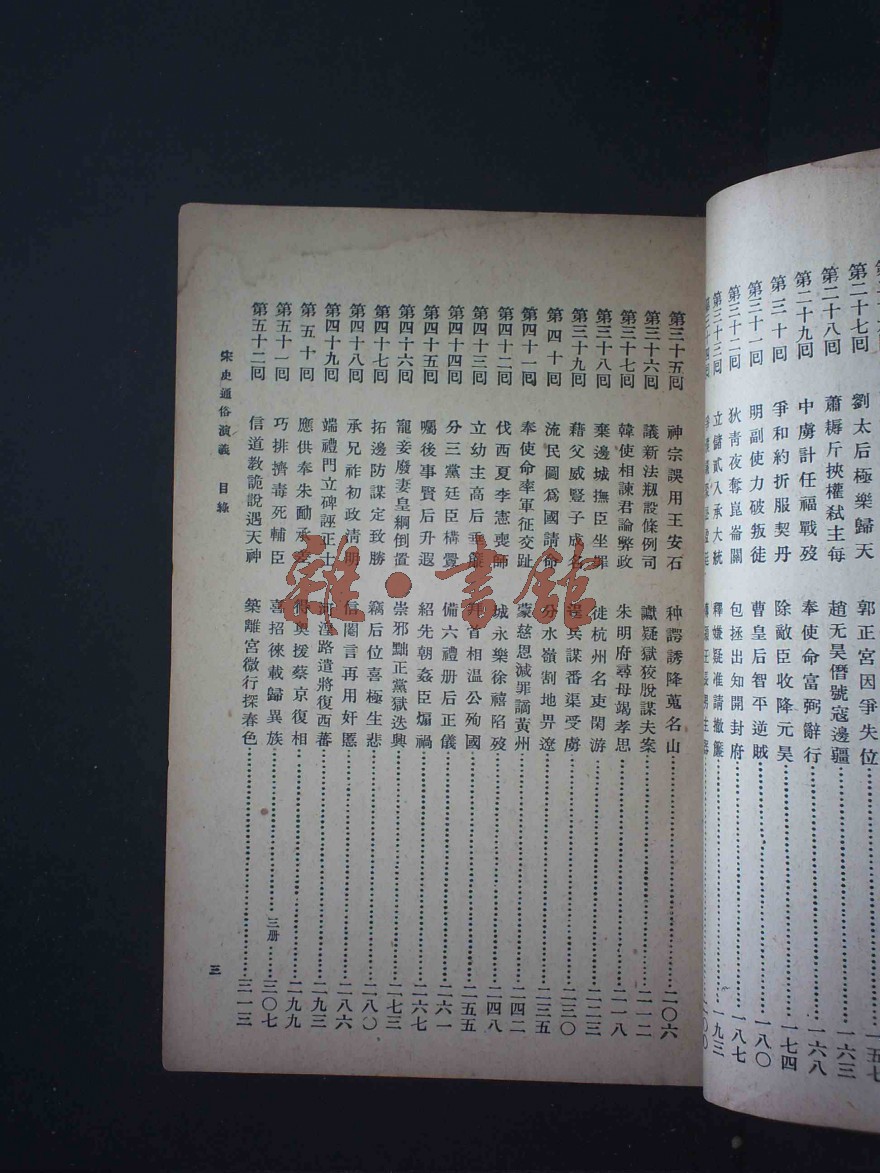 第二十七回 劉太后極樂歸天 郭正宮因爭失位
第二十八回 蕭耨斤挾權弒主每 趙元昊僭號寇邊疆 一六三
第二十九回 中虜計任福戰歿 奉使命富弼辭行 一六八
第三十回 爭和約折服契丹 除敵臣收降元昊 一七四
第三十一回 明副使力破叛徒 曹皇后智平逆賊 一八〇
第三十二回 狄青夜奪崑崙關 包拯出知開封府 一八七
第三十三回 立儲貳入承大統 釋嫌疑准請撤簾 一九三
第三十五回 神宗誤用王安石 种諤誘降嵬名山 二〇六
第三十六回 議新法創設條例司 讞疑獄狡脫謀夫案 二一二
第三十七回 韓使相諫君論弊政 朱明府尋母竭孝思 二一八
第三十八回 棄邊城撫臣坐罪 徙杭州名吏閑游 二二三
第三十九回 藉父威豎子成名 逞兵謀番渠受虜 二三〇
第四十回 流民圖爲國請命 分水嶺割地畀遼 二三五
第四十一回 奉使命率軍征交趾 蒙慈恩減罪謫黃州 二四二
第四十二回 伐西夏李憲喪師 城永樂徐禧陷歿 二四八
第四十三回 立幼主高后垂簾 拜首相溫公殉國 二五五
第四十四回 分三黨廷臣構釁 備六禮册后正儀 二六一
第四十五回 囑後事賢后升遐 紹先朝姦臣煽禍 二六七
第四十六回 寵妾廢妻皇綱倒置 崇邪黜正黨獄迭興 二七三
第四十七回 拓邊防謀定致勝 竊后位喜極生悲 二八〇
第四十八回 承兄祚初政淸明 信閹言再用奸慝 二八六
第四十九回 端禮門立碑誣正士 河湟路遣將復西蕃 二九三
第五十回 應供奉朱勔承差 得奧援蔡京復相 二九九
第五十一回 巧排擠毒死輔臣 喜招徠載歸異族 三册 三〇七
第五十二回 信道教詭說遇天神 築離宮微行探春色 三一三
宋史通俗演義 目錄 三
雜·書館